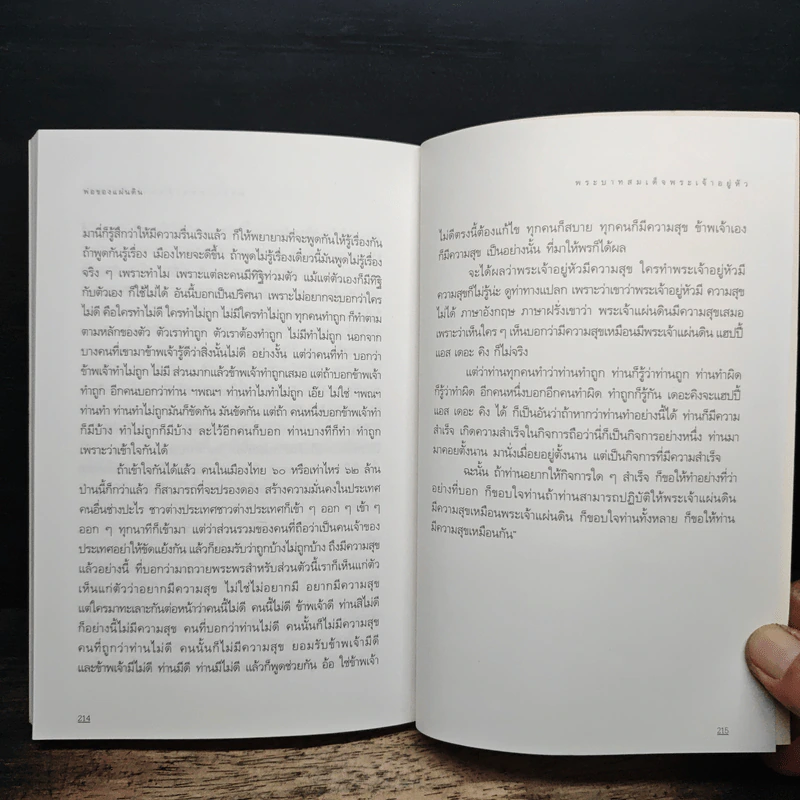 พ่อของแผ่นดิน
มานี่ก็รู้สึกว่าให้มีความรื่นเริงแล้ว ก็ให้พยายามที่จะพูดกันให้รู้เรื่องกัน
ถ้าพูดกันรู้เรื่อง เมืองไทยจะดีขึ้น ถ้าพูดไม่รู้เรื่องเดี๋ยวนี้มันพูดไม่รู้เรื่อง
จริง ๆ เพราะทำไม เพราะแต่ละคนมีทิฐิท่วมตัว แม้แต่ตัวเองก็มีทิฐิ
กับตัวเอง ก็ใช้ไม่ได้ อันนี้บอกเป็นปริศนา เพราะไม่อยากจะบอกว่าใคร
ไม่ดี คือใครทำไม่ดี ใครทำไม่ถูก ไม่มีใครทำไม่ถูก ทุกคนทำถูก ก็ทำตาม
ตามหลักของตัว ตัวเราทำถูก ตัวเราต้องทำถูก ไม่มีทำไม่ถูก นอกจาก
บางคนที่เขามาข้าพเจ้ารู้ดีว่าสิ่งนั้นไม่ดี อย่างงั้น แต่ว่าคนที่ทำ บอกว่า
ข้าพเจ้าทำไม่ถูก ไม่มี ส่วนมากแล้วข้าพเจ้าทำถูกเสมอ แต่ถ้าบอกข้าพเจ้า
ทำถูก อีกคนบอกว่าท่าน ฯพณฯ ท่านทำไมทำไม่ถูก เอ๊ย ไม่ใช่ ฯพณฯ
ท่านทำ ท่านทำไม่ถูกมันก็ขัดกัน มันขัดกัน แต่ถ้า คนหนึ่งบอกข้าพเจ้าทำ
ก็มีบ้าง ทำไม่ถูกก็มีบ้าง ละไว้อีกคนก็บอก ท่านบางทีก็ทำ ทำถูก
เพราะว่าเข้าใจกันได้
ถ้าเข้าใจกันได้แล้ว คนในเมืองไทย ๖๐ หรือเท่าไหร่ ๖๒ ล้าน
ป่านนี้ก็กว่าแล้ว ก็สามารถที่จะปรองดอง สร้างความมั่นคงในประเทศ
คนอื่นช่างปะไร ชาวต่างประเทศชาวต่างประเทศก็เข้า ๆ ออก ๆ เข้า ๆ
ออก ๆ ทุกนาทีก็เข้ามา แต่ว่าส่วนรวมของคนที่ถือว่าเป็นคนเจ้าของ
ประเทศอย่าให้ขัดแย้งกัน แล้วก็ยอมรับว่าถูกบ้างไม่ถูกบ้าง ถึงมีความสุข
แล้วอย่างนี้ ที่บอกว่ามาถวายพระพรสำหรับส่วนตัวนี้เราก็เห็นแก่ตัว
เห็นแก่ตัวว่าอยากมีความสุข ไม่ใช่ไม่อยากมี อยากมีความสุข
แต่ใครมาทะเลาะกันต่อหน้าว่าคนนี้ไม่ดี คนนี้ไม่ดี ข้าพเจ้าดี ท่านสิไม่ดี
ก็อย่างนี้ไม่มีความสุข คนที่บอกว่าท่านไม่ดี คนนั้นก็ไม่มีความสุข
คนที่ถูกว่าท่านไม่ดี คนนั้นก็ไม่มีความสุข ยอมรับข้าพเจ้ามีดี
และข้าพเจ้ามีไม่ดี ท่านมีดี ท่านมีไม่ดี แล้วก็พูดช่วยกัน อ้อ ใช่ข้าพเจ้า
214
พระบาทสมเด็จพระเจ้าอยู่หัว
ไม่ดีตรงนี้ต้องแก้ไข ทุกคนก็สบาย ทุกคนก็มีความสุข ข้าพเจ้าเอง
ก็มีความสุข เป็นอย่างนั้น ที่มาให้พรก็ได้ผล
จะได้ผลว่าพระเจ้าอยู่หัวมีความสุข ใครทำพระเจ้าอยู่หัวมี
ความสุขก็ไม่รู้น่ะ ดูท่าทางแปลก เพราะว่าเขาว่าพระเจ้าอยู่หัวมี ความสุข
ไม่ได้ ภาษาอังกฤษ ภาษาฝรั่งเขาว่า พระเจ้าแผ่นดินมีความสุขเสมอ
เพราะว่าเห็นใคร ๆ เห็นบอกว่ามีความสุขเหมือนมีพระเจ้าแผ่นดิน แฮปปี้
แอส เดอะ คิง ก็ไม่จริง
แต่ว่าท่านทุกคนทำว่าท่านทำถูก ท่านก็รู้ว่าท่านถูก ท่านทำผิด
ก็รู้ว่าทำผิด อีกคนหนึ่งบอกอีกคนทำผิด ทำถูกก็รู้กัน เดอะคิงจะแฮปปี้
แอส เดอะ คิง ได้ ก็เป็นอันว่าถ้าหากว่าท่านทำอย่างนี้ได้ ท่านก็มีความ
สำเร็จ เกิดความสำเร็จในกิจการถือว่านี่ก็เป็นกิจการอย่างหนึ่ง ท่านมา
มาคอยตั้งนาน มานั่งเมื่อยอยู่ตั้งนาน แต่เป็นกิจการที่มีความสำเร็จ
ฉะนั้น ถ้าท่านอยากให้กิจการใด ๆ สำเร็จ ก็ขอให้ทำอย่างที่ว่า
อย่างที่บอก ก็ขอบใจท่านถ้าท่านสามารถปฏิบัติให้พระเจ้าแผ่นดิน
มีความสุขเหมือนพระเจ้าแผ่นดิน ก็ขอบใจท่านทั้งหลาย ก็ขอให้ท่าน
มีความสุขเหมือนกัน"
215